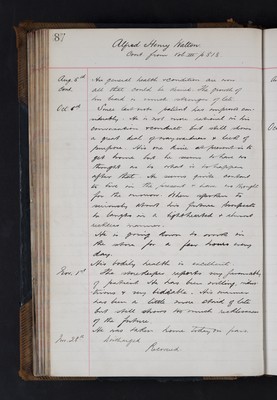 87
Alfred Henry Walton
Cont. from Vol. III p. 818.
Aug. 6th His general health & condition are now
Cont. all that could be desired. The growth of
his head is much stronger of late.
Oct 6th Since last note patient has improved con-
siderably. He is not more rational in his
conversation & conduct but still shows
a great deal of waywardness & lack of
purpose. His one aim at present is to
get home but he seems to have no
thought as to what is to happen
after that. He seems quite content
to live in the present & have no thought
for the morrow. When spoken to
seriously about his future prospects
he laughs in a lighthearted & almost
reckless manner.
He is going down to work in
the store for a few hours every
day.
His bodily health is excellent.
Nov. 1st The storekeeper reports very favourably
of patient. He has been willing, indus-
trious & very biddable. His manner
has been a little more staid of late
but still shows too much recklessness
of the future.
He was taken home today on pass
Nov. 28th Discharged
Recovered.